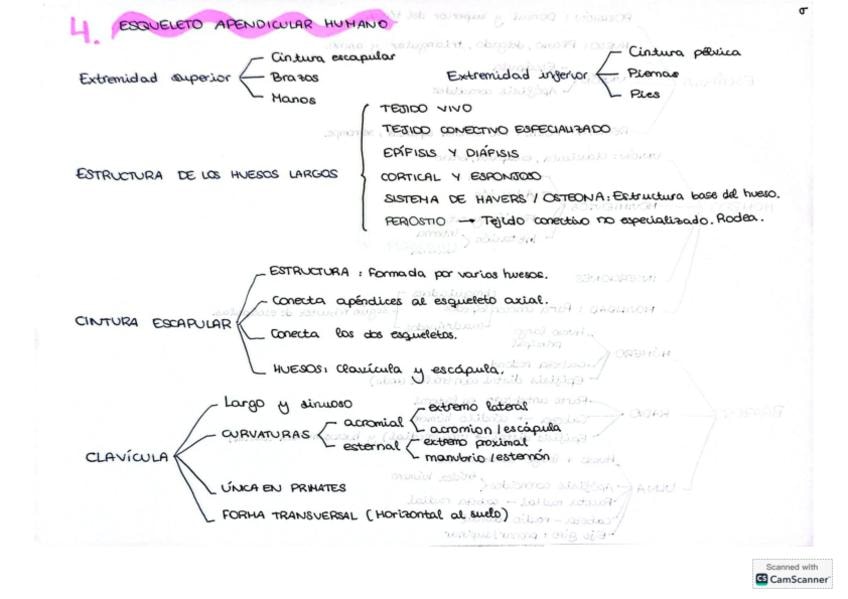 4. ESQUELETO APENDICULAR HUMANO
Extremidad superior
Cintura escapular
Brazos
Manos
Extremidad inferior
Cintura pélvica
Piernas
Pies
ESTRUCTURA DE LOS HUESOS LARGOS
TEJIDO VIVO
TEJIDO CONECTIVO ESPECIALIZADO
EPÍFISIS Y DIÁFISIS
CORTICAL Y ESPONJOSO
SISTEMA DE HAVERS / OSTEONA: Estructura base del hueso.
PERIOSTIO → Tejido conectivo no especializado. Rodea.
CINTURA ESCAPULAR
ESTRUCTURA : Formada por varios huesos.
Conecta apéndices al esqueleto axial.
Conecta los dos esqueletos.
HUESOS: clavícula y escápula.
CLAVÍCULA
Largo y sinuoso
CURVATURAS
acromial
extremo lateral
acromion / escápula
esternal
extremo proximal
manubrio / esternón
ÚNICA EN PRIMATES
FORMA TRANSVERSAL (Horizontal al suelo)
Scanned with
CS CamScanner